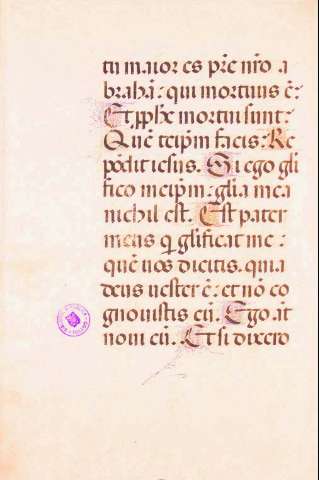 tu maior es pr̄e nr̄o a
braha᷑: qui mortuus ē:
Et ꝓphe mortui sunt:
Quē teip̄m facis: Re
spōdit iesus. Si ego glī
fico meip̄m: glīa mea
nichil est. Est pater
meus q̄ glīficat me:
quē vos dicitis. quia
deus vester ē: et nō co
gnovistis eū. Ego āt
novi eū. Et si dixero